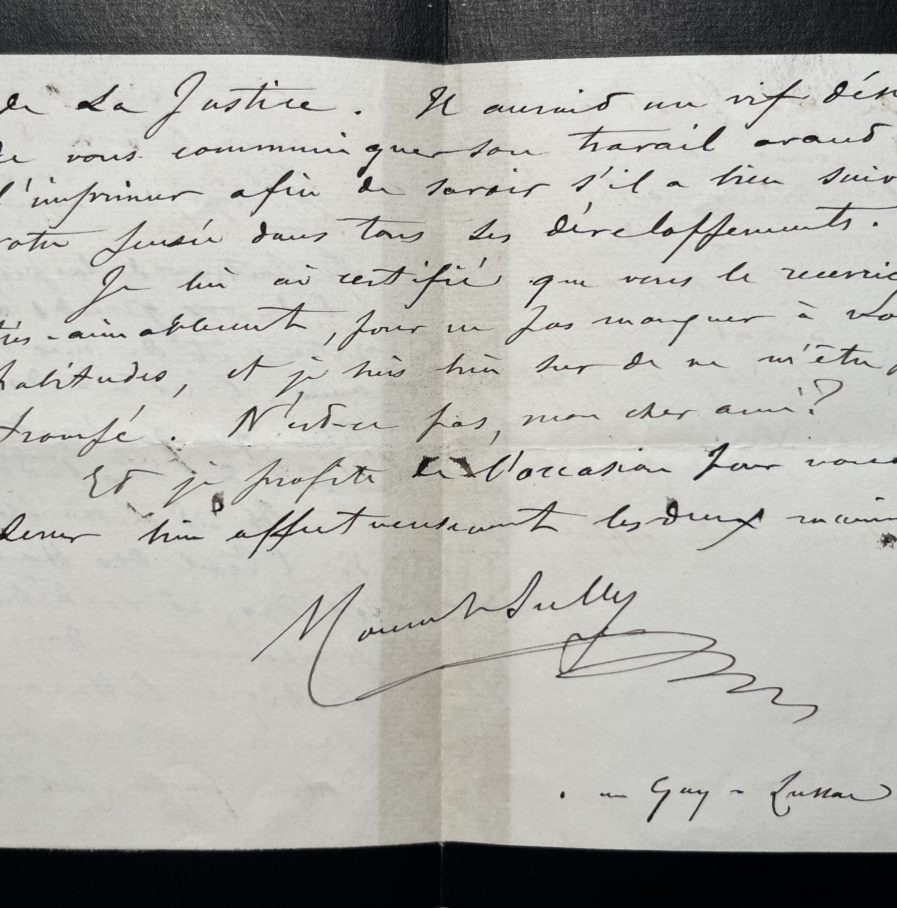 de La Justice. Il aurait un vif dés
de vous communiquer son travail avant
l'imprimer afin de savoir s'il a bien suiv
votre pensée dans tous ses développements.
Je lui ai certifié que vous le recevrie
très-aimablement, pour ne pas manquer à vo
habitudes, et je suis bien sur de ne m'être p
trompé. N'est-ce pas, mon cher ami?
Et je profite de l'occasion pour vous
serrer bien affectueusement les deux main
Mounet Sully
rue Gay-Lussac